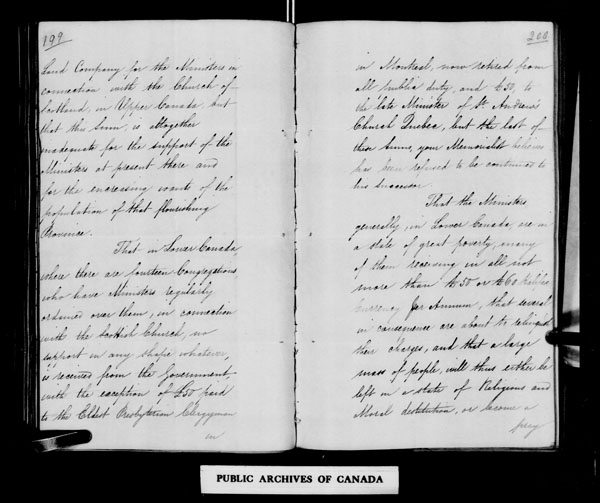 199
Land Company for the Ministers in
connection with the Church of
Scotland, in Upper Canada, but
that this Sum, is altogether
inadequate for the support of the
Ministers at present there and
for the encreasing wants of the
population of that flourishing
Province.
That in Lower Canada,
where there are fourteen Congregations
who have Ministers regularly
ordained over them, in connection
with the Scottish Church, no
support in any shape whatever,
is received from the Government
with the exception of £50 paid
to the Eldest Presbyterian Clergyman
in
200
in Montreal, now retired from
all public duty, and £50, to
the late Minister of St Andrew's
Church Quebec, but the last of
these Sums, your Memorialist believes
has been refused to be continued to
his Successor.
That the Ministers
generally, in Lower Canada, are in
a state of great poverty, many
of them receiving in all not
more than £50 or £60 Halifax
Currency per Annum, that several
in consequence are about to relinquish
their charges, and that a large
mass of people, will thus either be
left in a state of Religious and
Moral destitution, or become a
prey
PUBLIC ARCHIVES OF CANADA